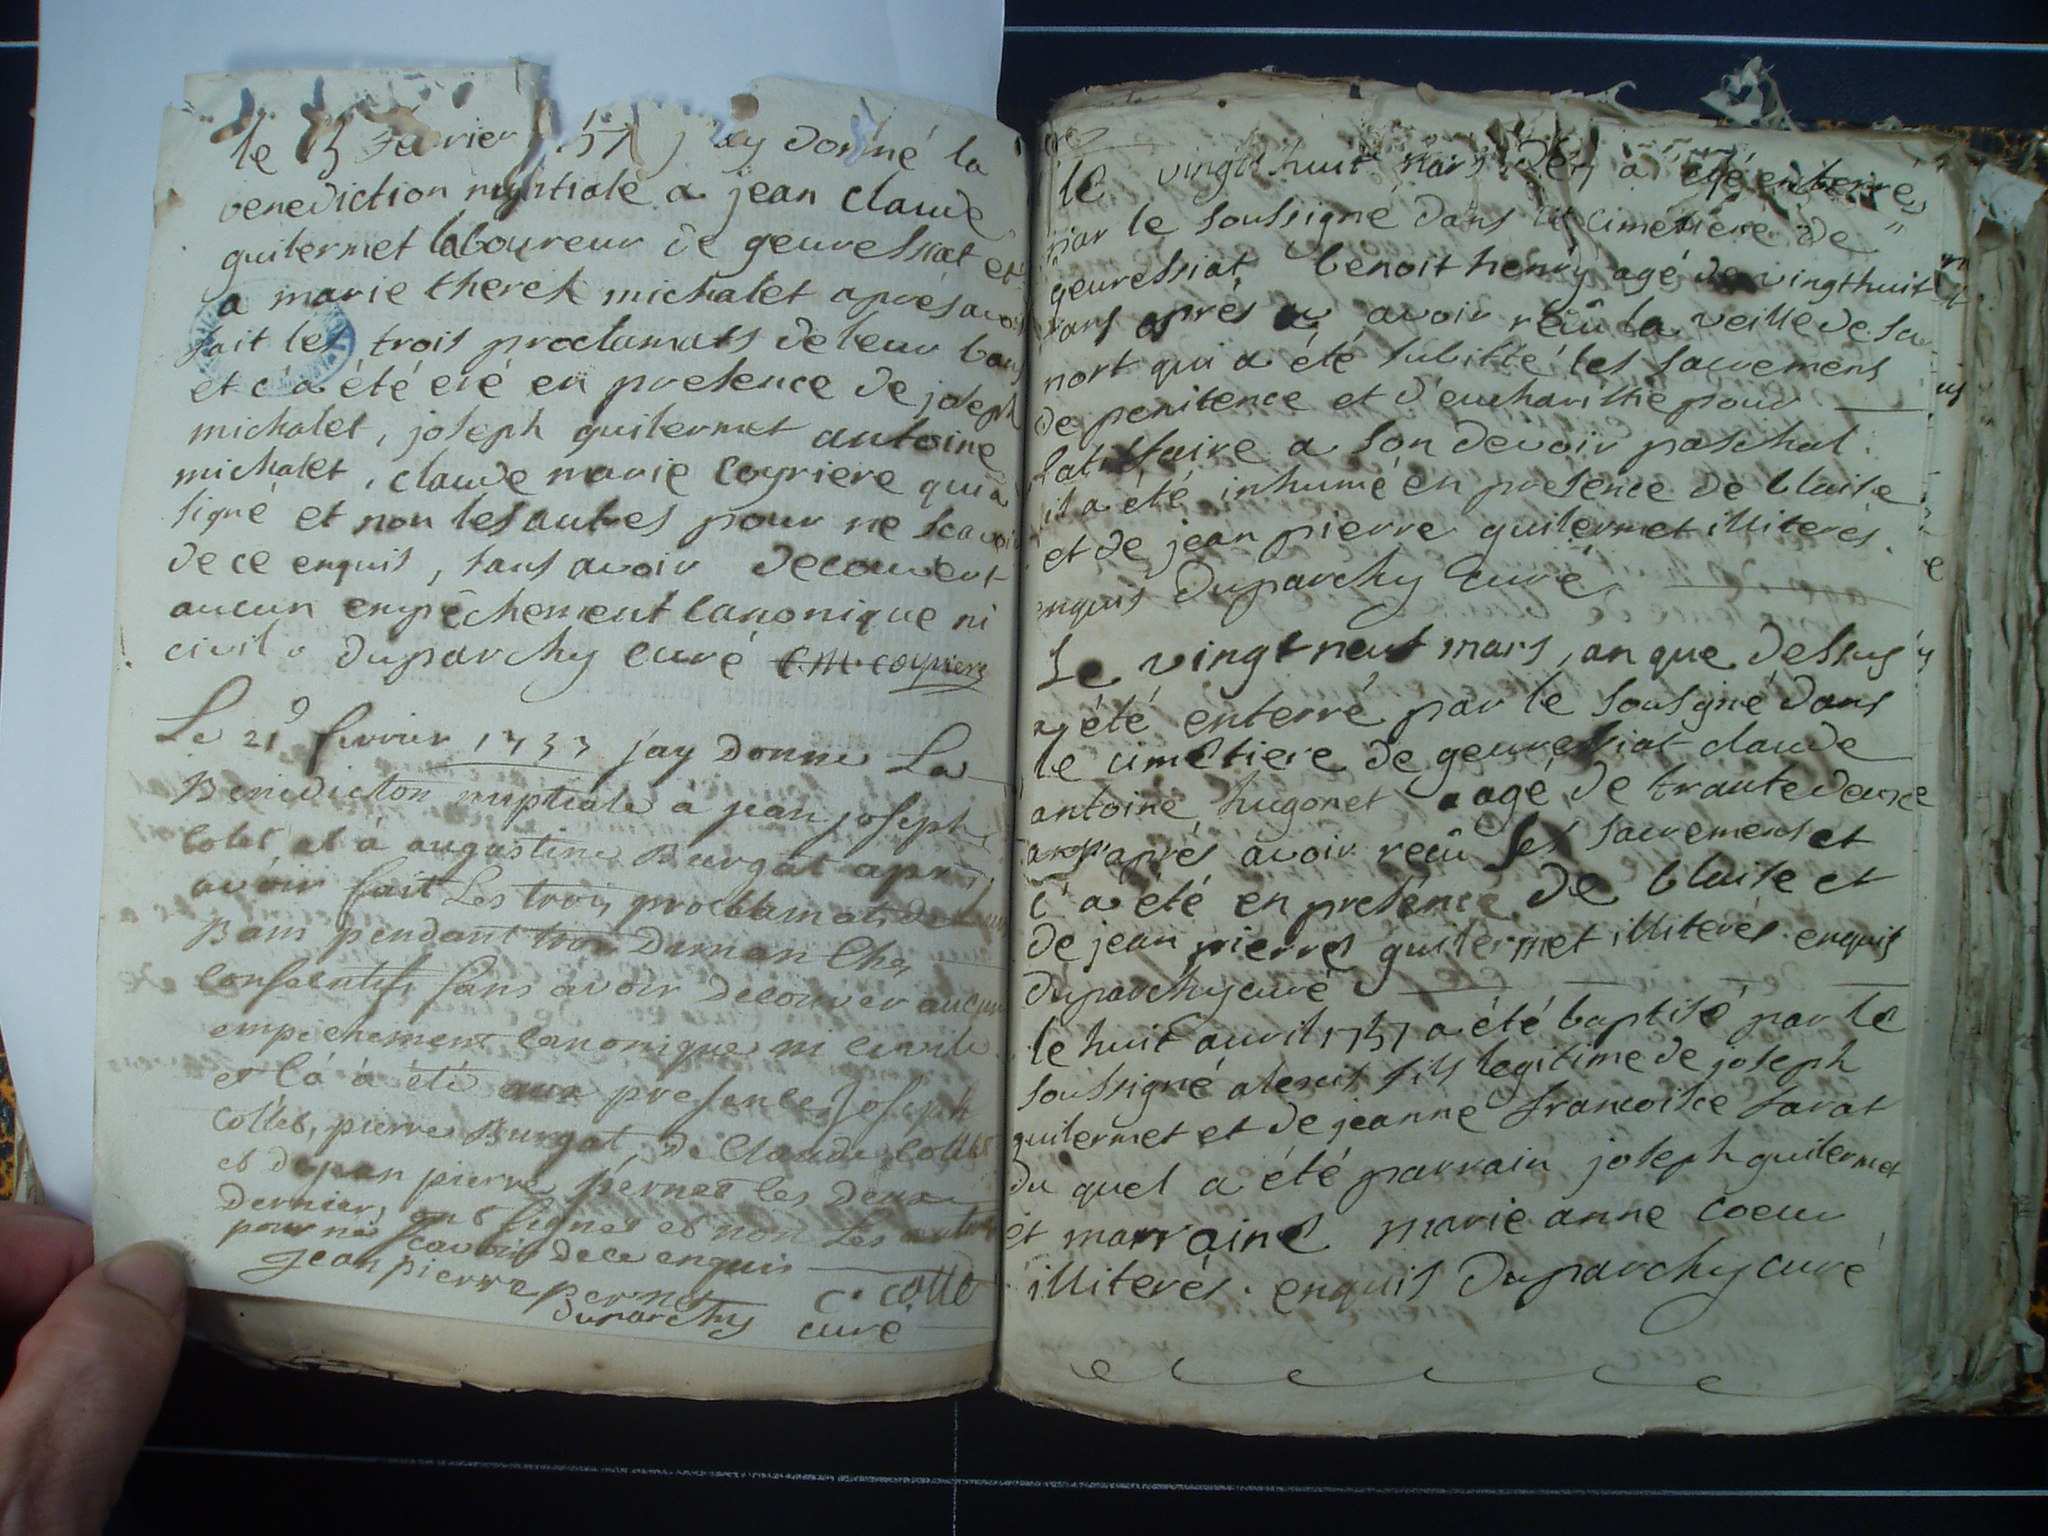 le 15 Fevrier 1757 j'ay donné la
benediction nuptiale a jean claude
guilermet laboureur de geuressiat et
a marie therese michalet aprés avoir
fait les trois proclamats de leur bans
et c'a été eté en presence de joseph
michalet, joseph guilermet antoine
michalet, claude marie Coyriere qui a
signé et non les autres pour ne scavoir
de ce enquis, sans avoir decouvert
aucun empêchement canonique ni
civil. Duparchy curé C.M. coyriere
Le 21e fevrier 1757 j'ay Donne La
Benediction nuptiale à jean joseph
Colet et à augustine Burgat apres
avoir fait Les trois proclamat de leur
Bans pendant trois Diman Ches
Consecutifs sans avoir Decouver aucun
empechement Canonique ni civile
et Cà à été aux presences Joseph
Collet, pierre Burgat, de Claude Collet
et de jean pierre pernet les deux
Dernier, ont signes et non Les autres
pour ne scavoir de ce enquis
Jean pierre pernet C. collet
Duparchy curé
le vingt huit mars 1757 a été enterré
par le soussigné dans le cimetiere de
geuressiat benoit henry agé de vingthuit
ans aprés avoir recû la veille de sa
mort qui a été subitte les sacremens
de penitence et d'eucharistie pour
satisfaire a son devoir paschal.
il a été inhumé en presence de blaise
et de jean pierre guilermet illiterés.
enquis Duparchy curé
Le vingt neuf mars, an que dessus
a été enterré par le sousigné dans
le cimetiere de geuressiat claude
antoine hugonet agé de trante deux
ans aprés avoir recû les sacremens et
c'a été en presence de blaise et
de jean pierre guilermet illiterés enquis
Duparchy curé
le huit auvril 1757 a été baptisé par le
soussigné alexis fils legitime de joseph
guilermet et de jeanne francoise favat
du quel a été parrain joseph guilermet
et marraine marie anne coeur
illiterés. enquis Duparchy curé